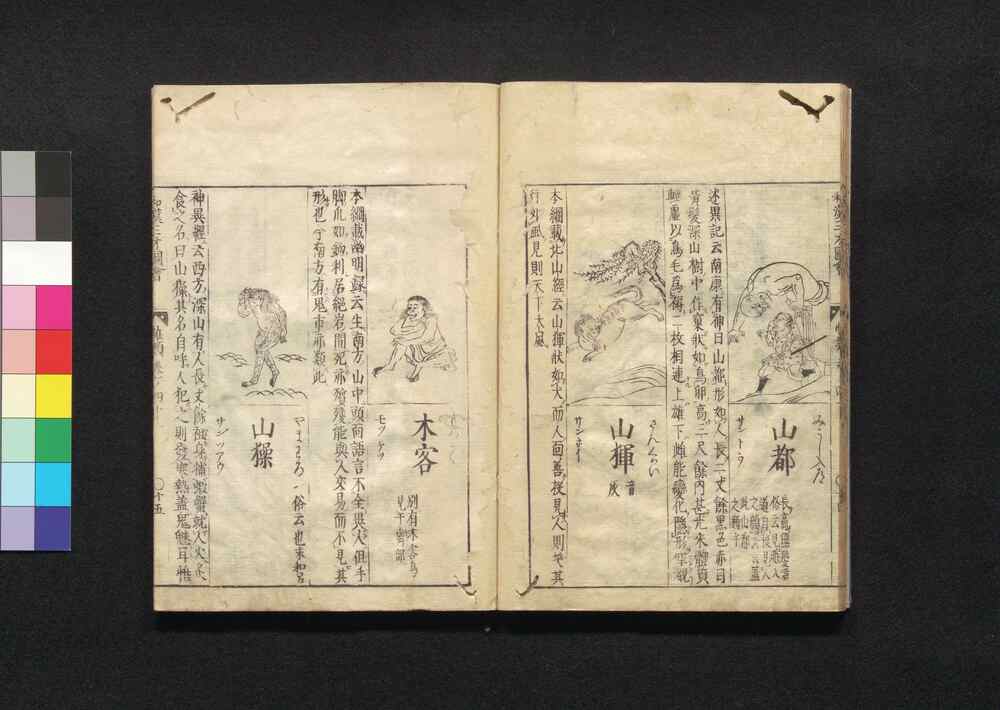 山都
みこし入道
サントウ
述異記云南康有神曰山都形如人長二丈餘黒色赤目
黄髪深山樹中作窠状如鳥卵高三尺餘内甚光采體質
輕虚以鳥毛為褥二枚相連上雄下雌能變化隱形罕覩
山𤟤
音
さんくい
サンホイ
本綱載北山經云山𤟤狀如犬而人面善投見人則笑其
行如風見則天下大風
木客
モッケツ
別有木客鳥
見于禽部
本綱載幽明録云生南方山中頭面語言不全異人但手
脚爪如鉤利居絶岩間死亦殯殮能與人交易而不見其
形也今南方有鬼市亦類此
山𤢖
やまわろ
サンツアウ
神異經云西方深山有人長丈餘袒身捕蝦蟹就人火炙
食之名曰山𤢖其名自呼人犯之則發寒熱蓋鬼魅耳惟
和漢三才圖會
十五